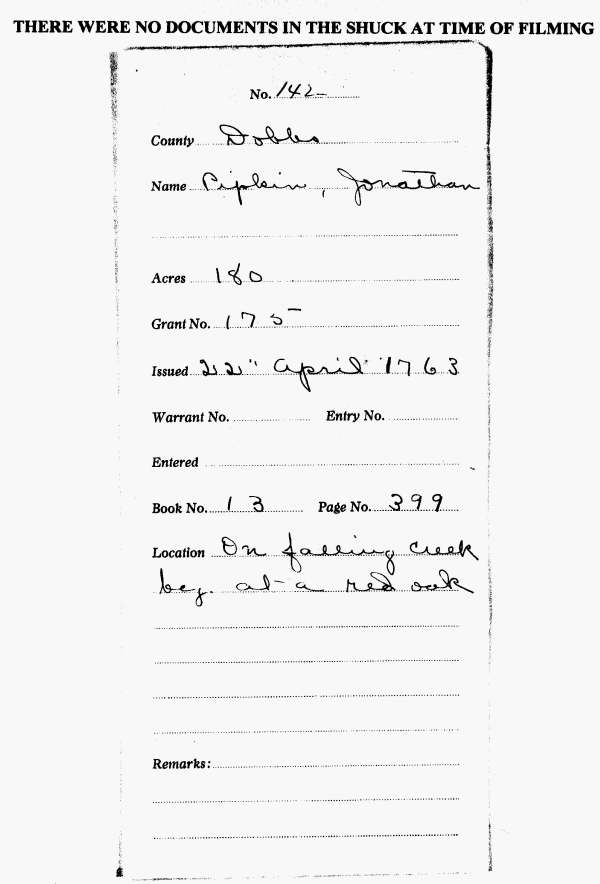 THERE WERE NO DOCUMENTS IN THE SHUCK AT TIME OF FILMING
No. 142
County Dobbs
Name Pipkin, Jonathan
Acres 180
Grant No. 175
Issued 22" April 1763
Warrant No. Entry No.
Entered
Book No. 13 Page No. 399
Location On falling creek
beg. at a red oak
Remarks: